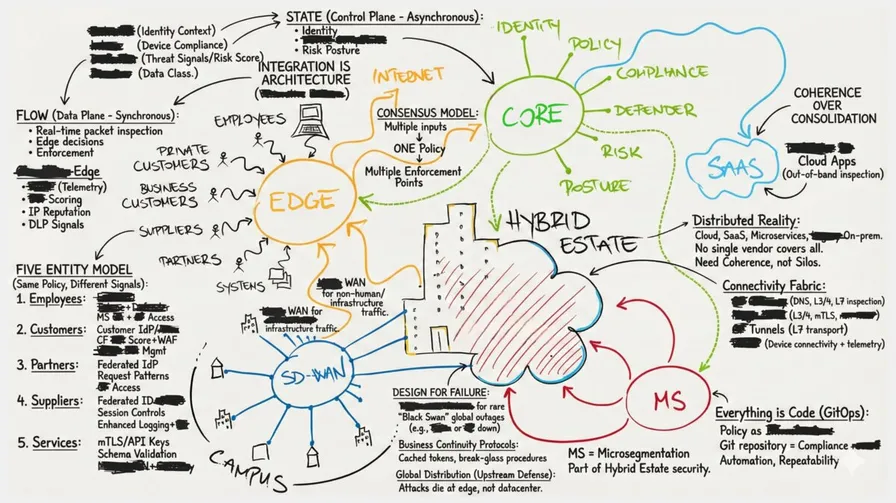 (Identity Context)
(Device Compliance)
(Threat Signals/Risk Score)
(Data Class.)
STATE (Control Plane - Asynchronous):
• Identity
• Risk Posture
INTEGRATION IS
ARCHITECTURE
FLOW (Data Plane - Synchronous)
• Real-time packet inspection
• Edge decisions
• Enforcement
-Edge
(Telemetry)
Scoring
• IP Reputation
• DLP Signals
EMPLOYEES
PRIVATE
CUSTOMERS
BUSINESS
CUSTOMERS
SUPPLIERS
PARTNERS
SYSTEMS
EDGE
INTERNET
CONSENSUS MODEL:
Multiple inputs
ONE Policy
Multiple Enforcement
Points
CORE
IDENTITY
POLICY
COMPLIANCE
DEFENDER
RISK
POSTURE
SAAS
COHERENCE
OVER
CONSOLIDATION
Cloud Apps
(Out-of-band inspection)
HYBRID
ESTATE
Distributed Reality:
Cloud, SaaS, Microservices, On-prem.
No single vendor covers all.
Need Coherence, not Silos.
Connectivity Fabric:
(DNS, L3/4, L7 inspection)
(L3/4, mTLS,
Tunnels (L7 transport)
(Device connectivity + telemetry)
FIVE ENTITY MODEL
(Same Policy, Different Signals):
1. Employees:
MS + Access
2. Customers:
Customer IdP/
CF Score+WAF
Mgmt
3. Partners:
Federated IdP
Request Patterns
Access
4. Suppliers:
Federated ID
Session Controls
Enhanced Logging+
5. Services:
mTLS/API Keys
Schema Validation
WAN
for non-human/
infrastructure
traffic.
WAN
for
infrastructure traffic.
SD-WAN
CAMPUS
DESIGN FOR FAILURE:
for rare
"Black Swan" global outages
(e.g., or down)
Business Continuity Protocols:
Cached tokens, break-glass procedures
Global Distribution (Upstream Defense)
Attacks die at edge, not datacenter.
MS
MS = Microsegmentation
Part of Hybrid Estate security.
Everything is Code (GitOps):
Policy as
Git repository = Compliance
Automation, Repeatability